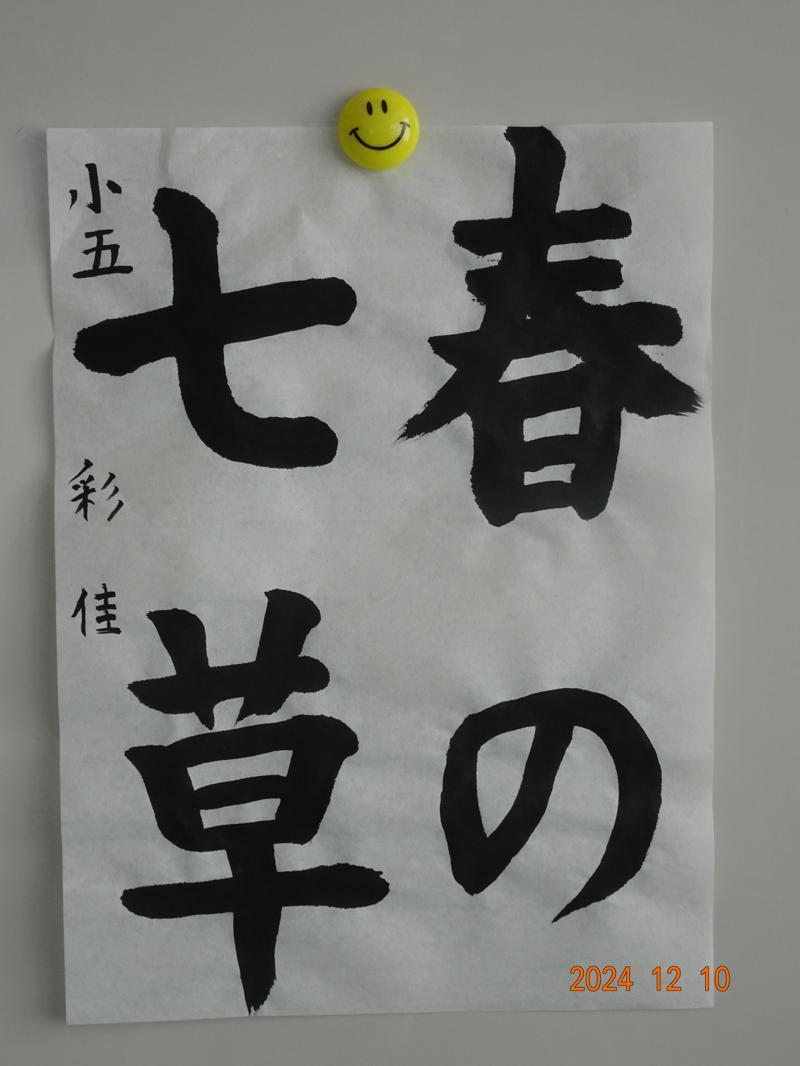 春の
七草
小五 彩佳
2024 12 10